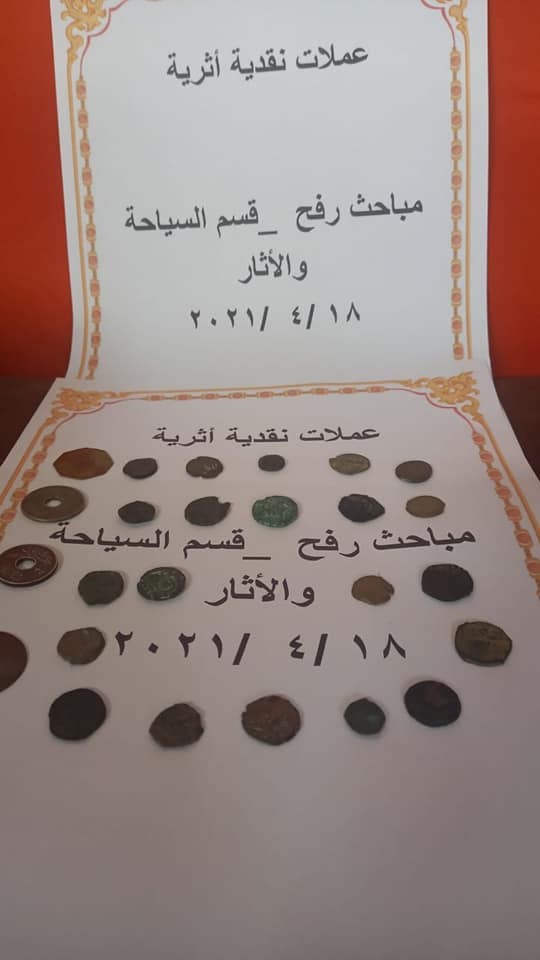 عملات نقدية أثرية
مباحث رفح _قسم السياحة
والأثار
١٨ /٤ /٢٠٢١
عملات نقدية أثرية
مباحث رفح _قسم السياحة
والأثار
١٨ /٤ /٢٠٢١